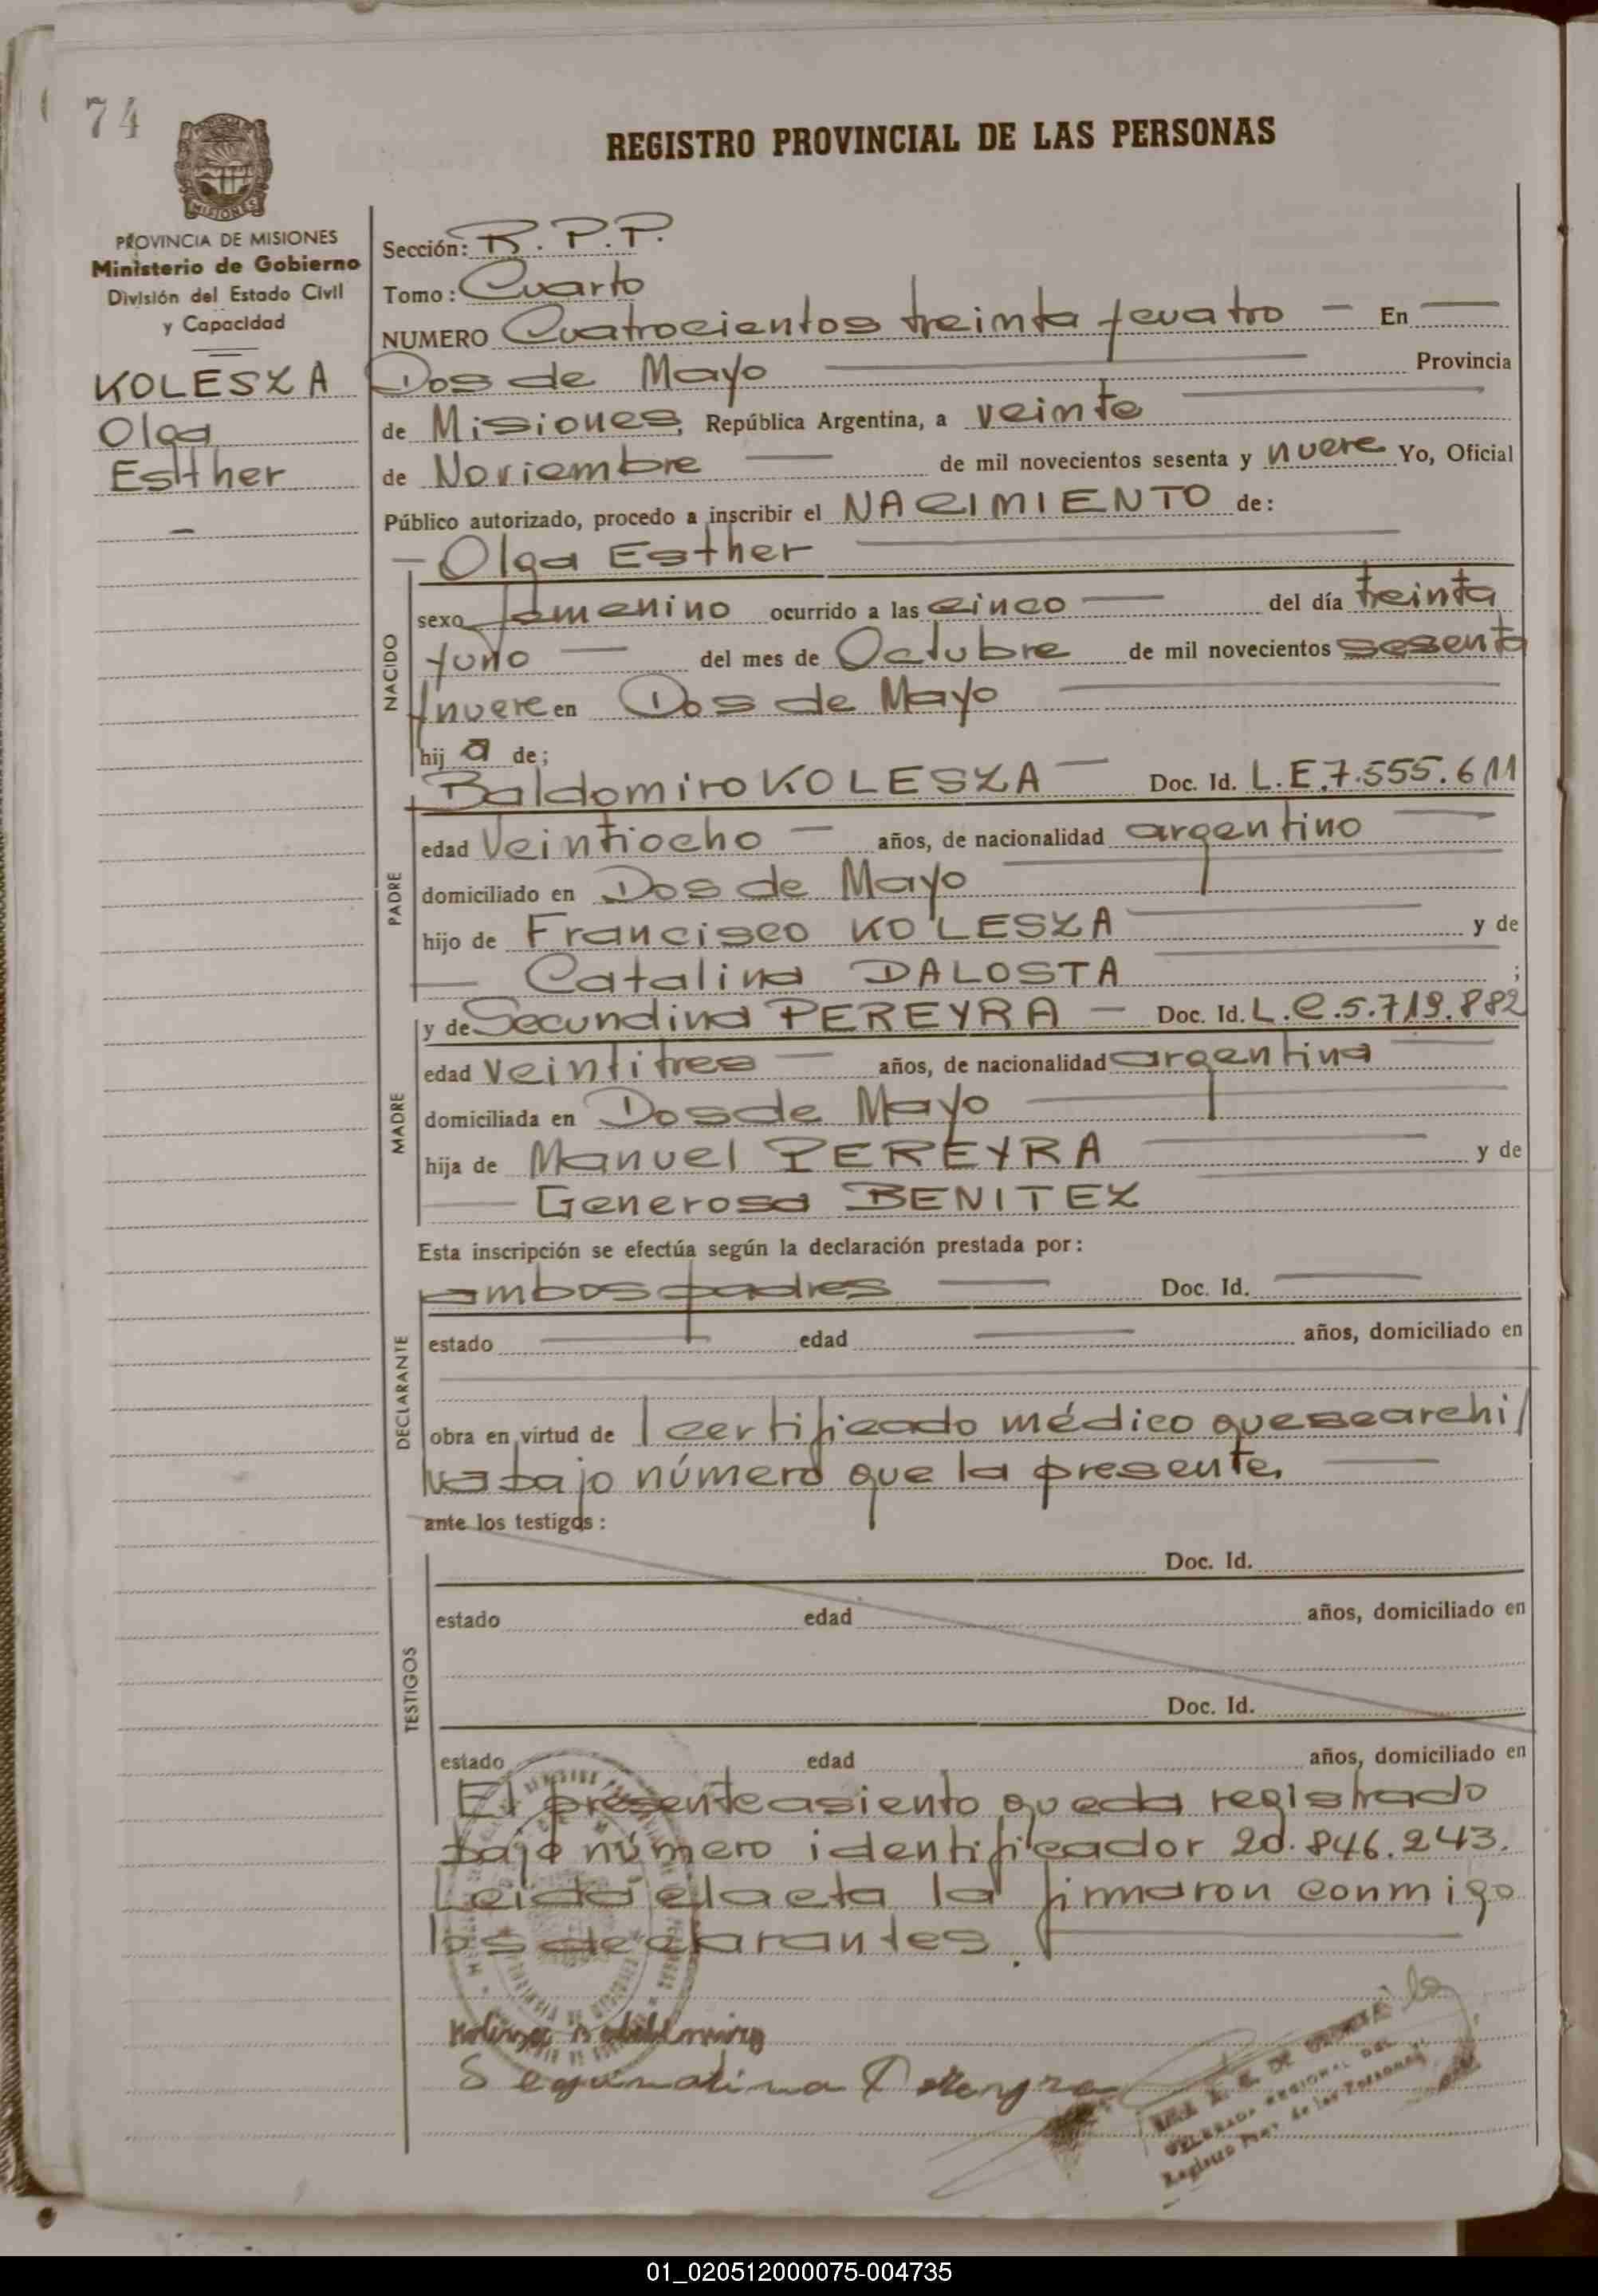 74
MISIONES
PROVINCIA DE MISIONES
Ministerio de Gobierno
División del Estado Civil
y Capacidad
KOLESZA
Olga
Esther
REGISTRO PROVINCIAL DE LAS PERSONAS
Sección: R.P.P.
Tomo: Cuarto
NUMERO Cuatrocientos treinta ycuatro — En —
Dos de Mayo — Provincia
de Misiones, República Argentina, a veinte —
de Noviembre — de mil novecientos sesenta y nueve Yo, Oficial
Público autorizado, procedo a inscribir el NACIMIENTO de:
— Olga Esther —
NACIDO
sexo femenino ocurrido a las cinco — del día treinta
yuno — del mes de Octubre de mil novecientos sesenta
ynueve en Dos de Mayo —
hij a de;
Baldomiro KOLESZA — Doc. Id. L.E.7.555.611
PADRE
edad Veintiocho — años, de nacionalidad argentino —
domiciliado en Dos de Mayo —
hijo de Francisco KOLESZA — y de
— Catalina DALOSTA — ;
MADRE
y de Secundina PEREYRA — Doc. Id. L.C.5.719.882
edad Veintitres — años, de nacionalidad argentina —
domiciliada en Dos de Mayo —
hija de Manuel PEREYRA — y de
— Generosa BENITEZ
Esta inscripción se efectúa según la declaración prestada por:
DECLARANTE
ambos padres — Doc. Id. —
estado — edad — años, domiciliado en
obra en virtud de l certificado médico que se archi/
va bajo número que la presente. —
ante los testigos:
TESTIGOS
Doc. Id.
estado edad años, domiciliado en
Doc. Id.
estado edad años, domiciliado en
El presente asiento queda registrado
bajo número identificador 20.846.243.
Leída el acta la firmaron conmigo
los declarantes. —
Segundina Pereyra
DELEGADA REGIONAL DEL
Registro Prov. de las Personas
01_020512000075-004735